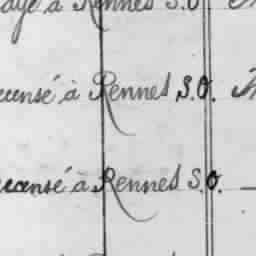 à Rennes S.O.
censé à Rennes S.O.
censé à Rennes S.O.